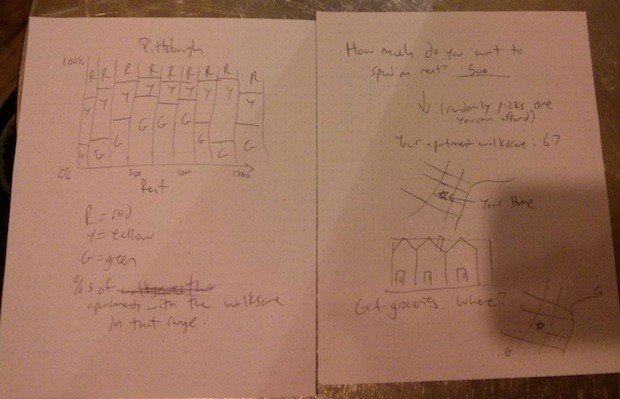 Pittsburgh
100%
R R R R R R R R R
Y Y Y Y Y Y Y Y Y
G G G G G G G G G
0% 500 1000 1500
Rent
R = red
Y = yellow
G = green
%s of
apartments with the walkscore
in that range.
How much do you want to
spend on rent? 500
(randomly picks one
you can afford)
Your apartment walkscore: 67
Your Home
Get groceries. Where?
G
G